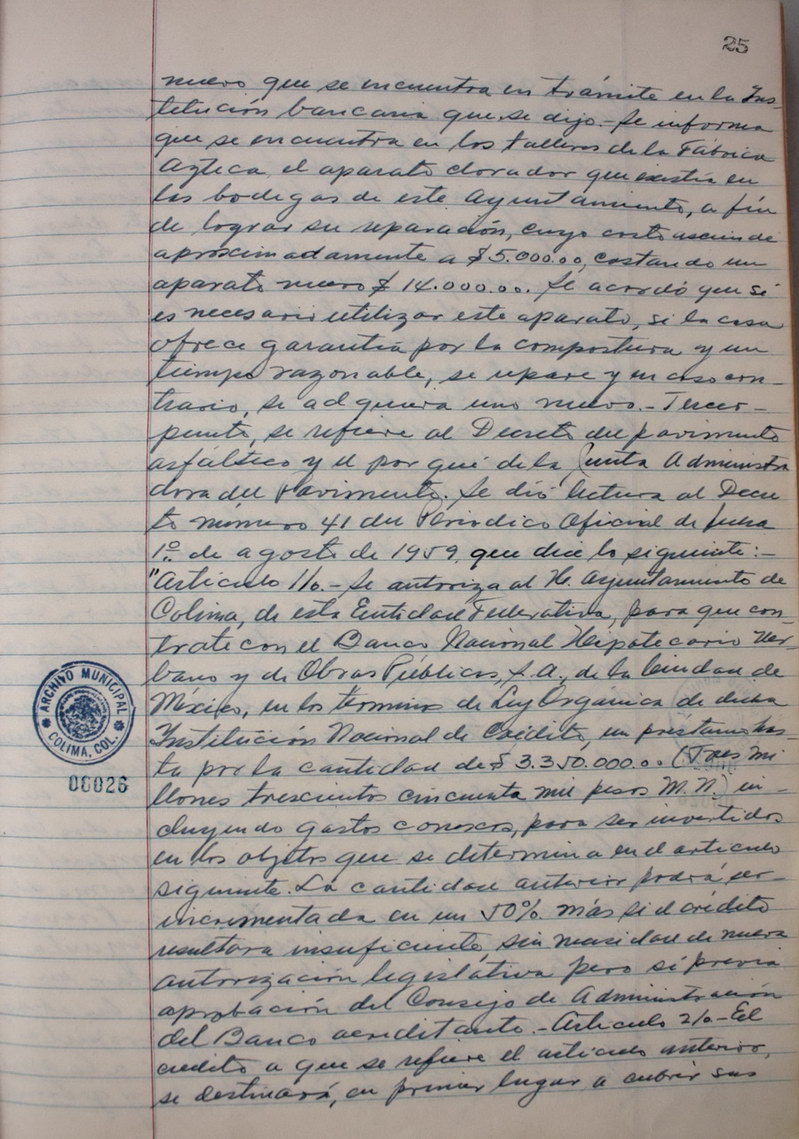 25
nuevo que se encuentra en trámite en la Ins-
titución bancaria que se dijo.- Se informa
que se encuentra en los talleres de la Fábrica
Azteca, el aparato clorador que existía en
las bodegas de este Ayuntamiento, a fin
de lograr su reparación, cuyo costo asciende
aproximadamente a $5.000.00, costando un
aparato nuevo $14.000.00. Se acordó que si
es necesario utilizar este aparato, si la casa
ofrece garantía por la compostura y un
tiempo razonable, se repare y en caso con-
trario, se adquiera uno nuevo.- Tercer-
punto, se refiere al Decreto del pavimento
asfáltico y el por qué de la Junta Administra
dora del Pavimento. Se dió lectura al Decre
to número 41 del Periódico Oficial de fecha
1o. de agosto de 1959 que dice lo siguiente:-
"Artículo 1/o.- Se autoriza al H. Ayuntamiento de
Colima, de esta Entidad Federativa, para que con-
trate con el Banco Nacional Hipotecario Ur-
bano y de Obras Públicas, S.A., de la Ciudad de
México, en los términos de Ley Orgánica de dicha
Institución Nacional de Crédito, un préstamo has-
ta por la cantidad de $3.350.000.00 (Tres mi
llones trescientos cincuenta mil pesos M.N.) in-
cluyendo gastos conexos, para ser invertidos
en los objetos que se determina en el artículo
siguiente. La cantidad anterior podrá ser-
incrementada en un 50% más si el crédito
resultara insuficiente, sin necesidad de nueva
autorización legislativa pero sí previa
aprobación del Consejo de Administración
del Banco acreditante.- Artículo 2/o.- El
crédito a que se refiere el artículo anterior,
se destinará, en primer lugar a cubrir sus
ARCHIVO MUNICIPAL
COLIMA, COL.
00026